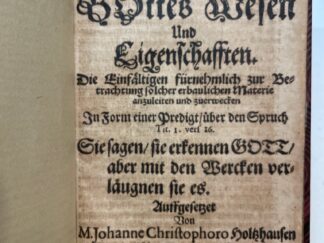 GOttes Wesen
Und
Eigenschafften.
Die Einfältigen fürnehmlich zur Be-
trachtung solcher erbaulichen Materie
anzuleiten und zuerwecken
In Form einer Predigt/über den Spruch
Tit. 1. vers 16.
Sie sagen/sie erkennen GOTT/
aber mit den Wercken ver-
läugnen sie es.
Auffgesetzet
Von
M. Johanne Christophoro Holtzhausen